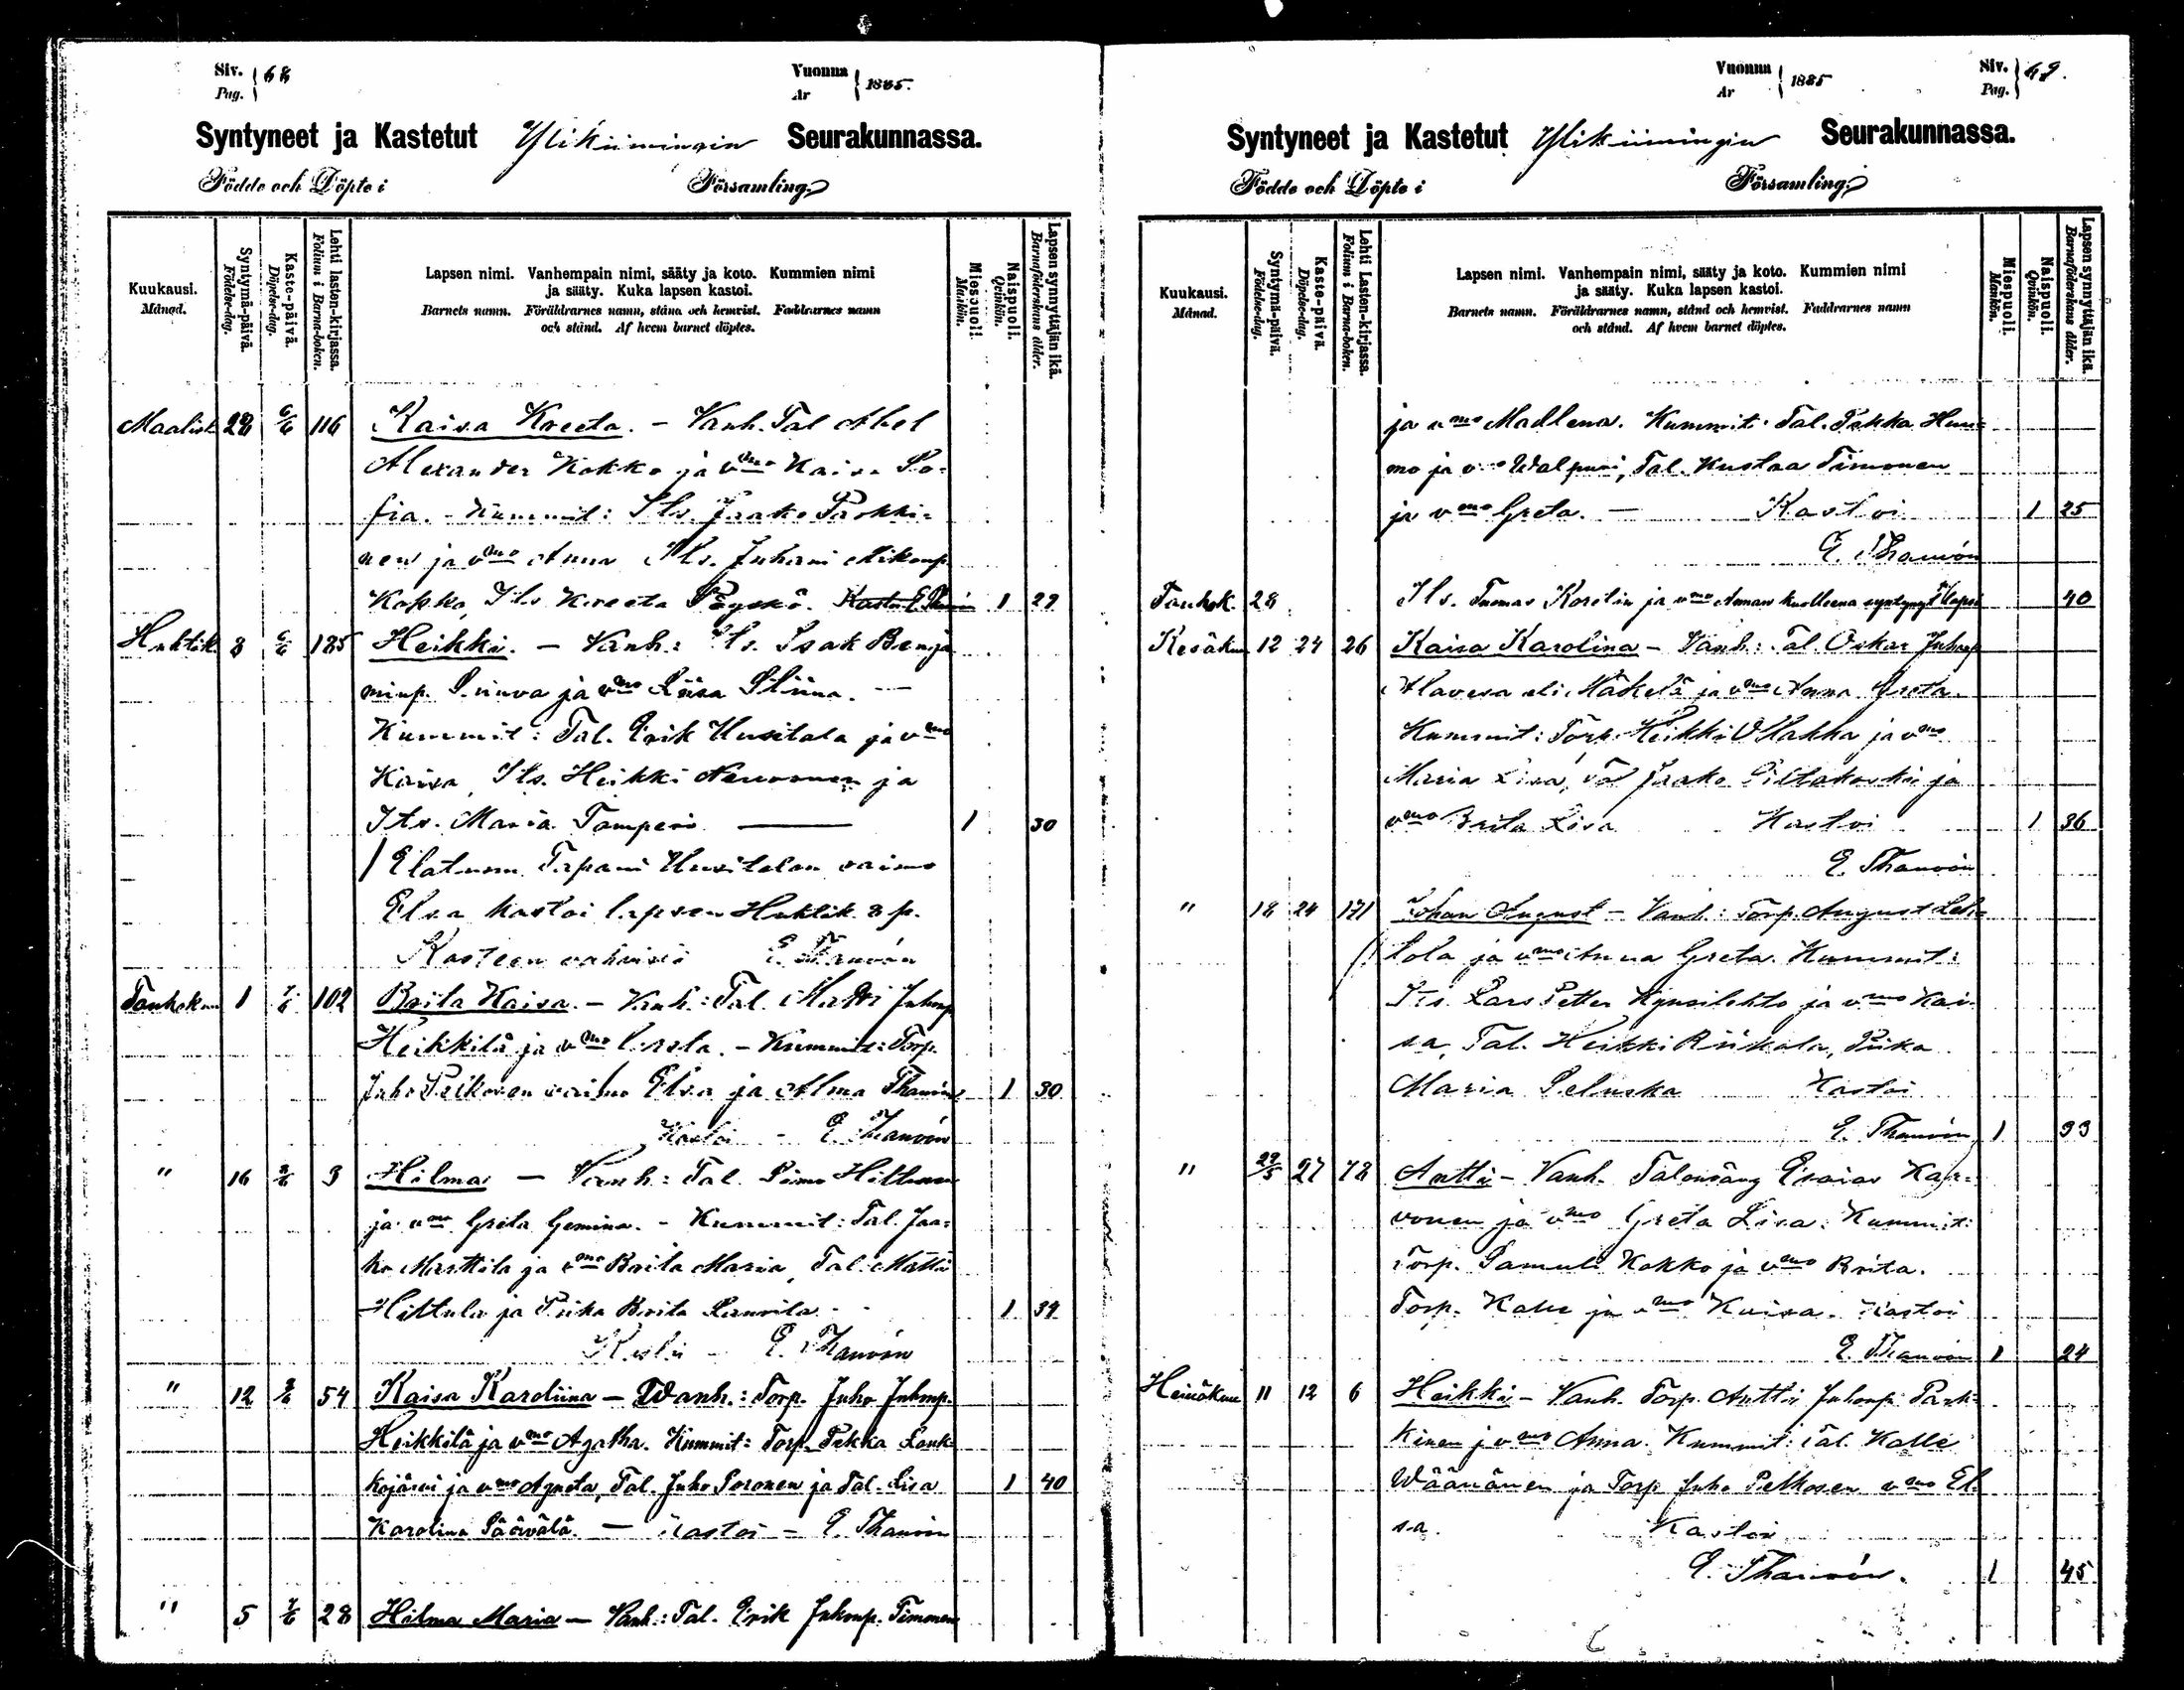 Siv. Pag. 68
Vuonna Ar 1885.
Syntyneet ja Kastetut Ylikiimingin Seurakunnassa.
Födde och Döpte i Församling.
Kuukausi. Månad.
Syntymä-päivä. Födelse-dag.
Kaste-päivä. Döpelse-dag.
Lehti lasten-kirjassa. Folium i Barna-boken.
Lapsen nimi. Vanhempain nimi, sääty ja koto. Kummien nimi
ja sääty. Kuka lapsen kastoi.
Barnets namn. Föräldrarnes namn, stånd och hemvist. Faddrarnes namn
och stånd. Af hvem barnet döptes.
Miespuoli. Mankön.
Naispuoli. Qvinkön.
Lapsen synnyttäjän ikä. Barnaföderskans ålder.
Maalisk 28 6/6 116 Kaisa Kreeta. - Vanh. Tal Abel
Alexander Kokko ja vmo Kaisa So-
fia. - Kummit: Its. Jaako Parkki-
nen ja vmo Anna Its. Juhani
Kokko, Its Kreeta Kastoi E. Thauvón 1 29
Huhtik. 3 6/6 185 Heikki. - Vanh: Its. Isak Benja
minp. ja vmo Liisa Stiina. -
Kummit: Tal. Erik Uusitalo ja vmo
Kaisa, Its. Heikki ja
Its. Maria Tamperi 1 30
Tapani Uusitalon vaimo
Elsa kastoi lapsen Huhtik. 3 p.
Kasteen vahvisti E. Thauvón
Toukokuu 1 7/6 102 Brita Kaisa. - Vanh: Tal. Matti Juhonp
Heikkilä ja vmo Ursla. - Kummit: Torp.
Juho Pelkosen vaimo Elsa ja Alma Thauvón 1 30
Kastoi - E. Thauvón
" 16 3 Hilma - Vanh: Tal. Simo Hiltunen
ja vmo Greta Gemina. - Kummit: Tal. Jaa-
ko Marttila ja vmo Brita Maria, Tal. Matti
Hiltula ja Piika Brita Laurila 1 39
Kastoi - E. Thauvón
" 12 54 Kaisa Karoliina - Wanh.: Torp. Juho Juhonp.
Heikkilä ja vmo Agatha. Kummit: Torp. Pekka Louk-
kojärvi ja vmo Agneta, Tal. Juho Soronen ja Tal. Lisa 1 40
Karolina Päävälä. - Kastoi - E. Thauvón
" 5 7/6 28 Hilma Maria - Vanh.: Tal. Erik Juhonp. Timonen
Vuonna Ar 1885
Siv. Pag. 69.
Syntyneet ja Kastetut Ylikiimingin Seurakunnassa.
Födde och Döpte i Församling.
Kuukausi. Månad.
Syntymä-päivä. Födelse-dag.
Kaste-päivä. Döpelse-dag.
Lehti Lasten-kirjassa. Folium i Barna-boken.
Lapsen nimi. Vanhempain nimi, sääty ja koto. Kummien nimi
ja sääty. Kuka lapsen kastoi.
Barnets namn. Föräldrarnes namn, stånd och hemvist. Faddrarnes namn
och stånd. Af hvem barnet döptes.
Miespuoli. Mankön.
Naispuoli. Qvinkön.
Lapsen synnyttäjän ikä. Barnaföderskans ålder.
ja vmo Madlena. Kummit: Tal. Pekka Huu-
mo ja vmo Walpuri, Tal. Kustaa Timonen
ja vmo Greta. - Kastoi 1 25
E. Thauvón
Toukok. 28 Its. Tuomas ja vmo Annan kuolleena syntynyt lapsi 40
Kesäkuu 12 24 26 Kaisa Karolina - Vanh: Tal. Oskar Juhonp
Alavesa eli Mäkelä ja vmo Anna Greta.
Kummit: Torp. Heikki ja vmo
Maria Lisa, Tal Jaako Siltakoski ja
vmo Brita Lisa Kastoi 1 36
E. Thauvón
" 18 24 171 Johan August - Vanh: Torp. August Leh-
tola ja vmo Anna Greta. Kummit:
Its. Lars Petter Kynsilehto ja vmo Kai-
sa, Tal. Heikki Riikola, Piika
Maria Peluska Kastoi
E. Thauvón 1 33
" 29/5 27 78 Antti - Vanh. Esaias Kar-
vonen ja vmo Greta Lisa. Kummit:
Torp. Samuli Kokko ja vmo Brita.
Torp. Kalle ja vmo Kaisa. Kastoi
E. Thauvón 1 24
Heinäkuu 11 12 6 Heikki - Vanh. Torp. Antti Juhonp. Park-
kinen j vmo Anna. Kummit: Tal. Kalle
Wäänänen ja Torp Juho Pelkosen vmo El-
sa. Kastoi
E. Thauvón. 1 45